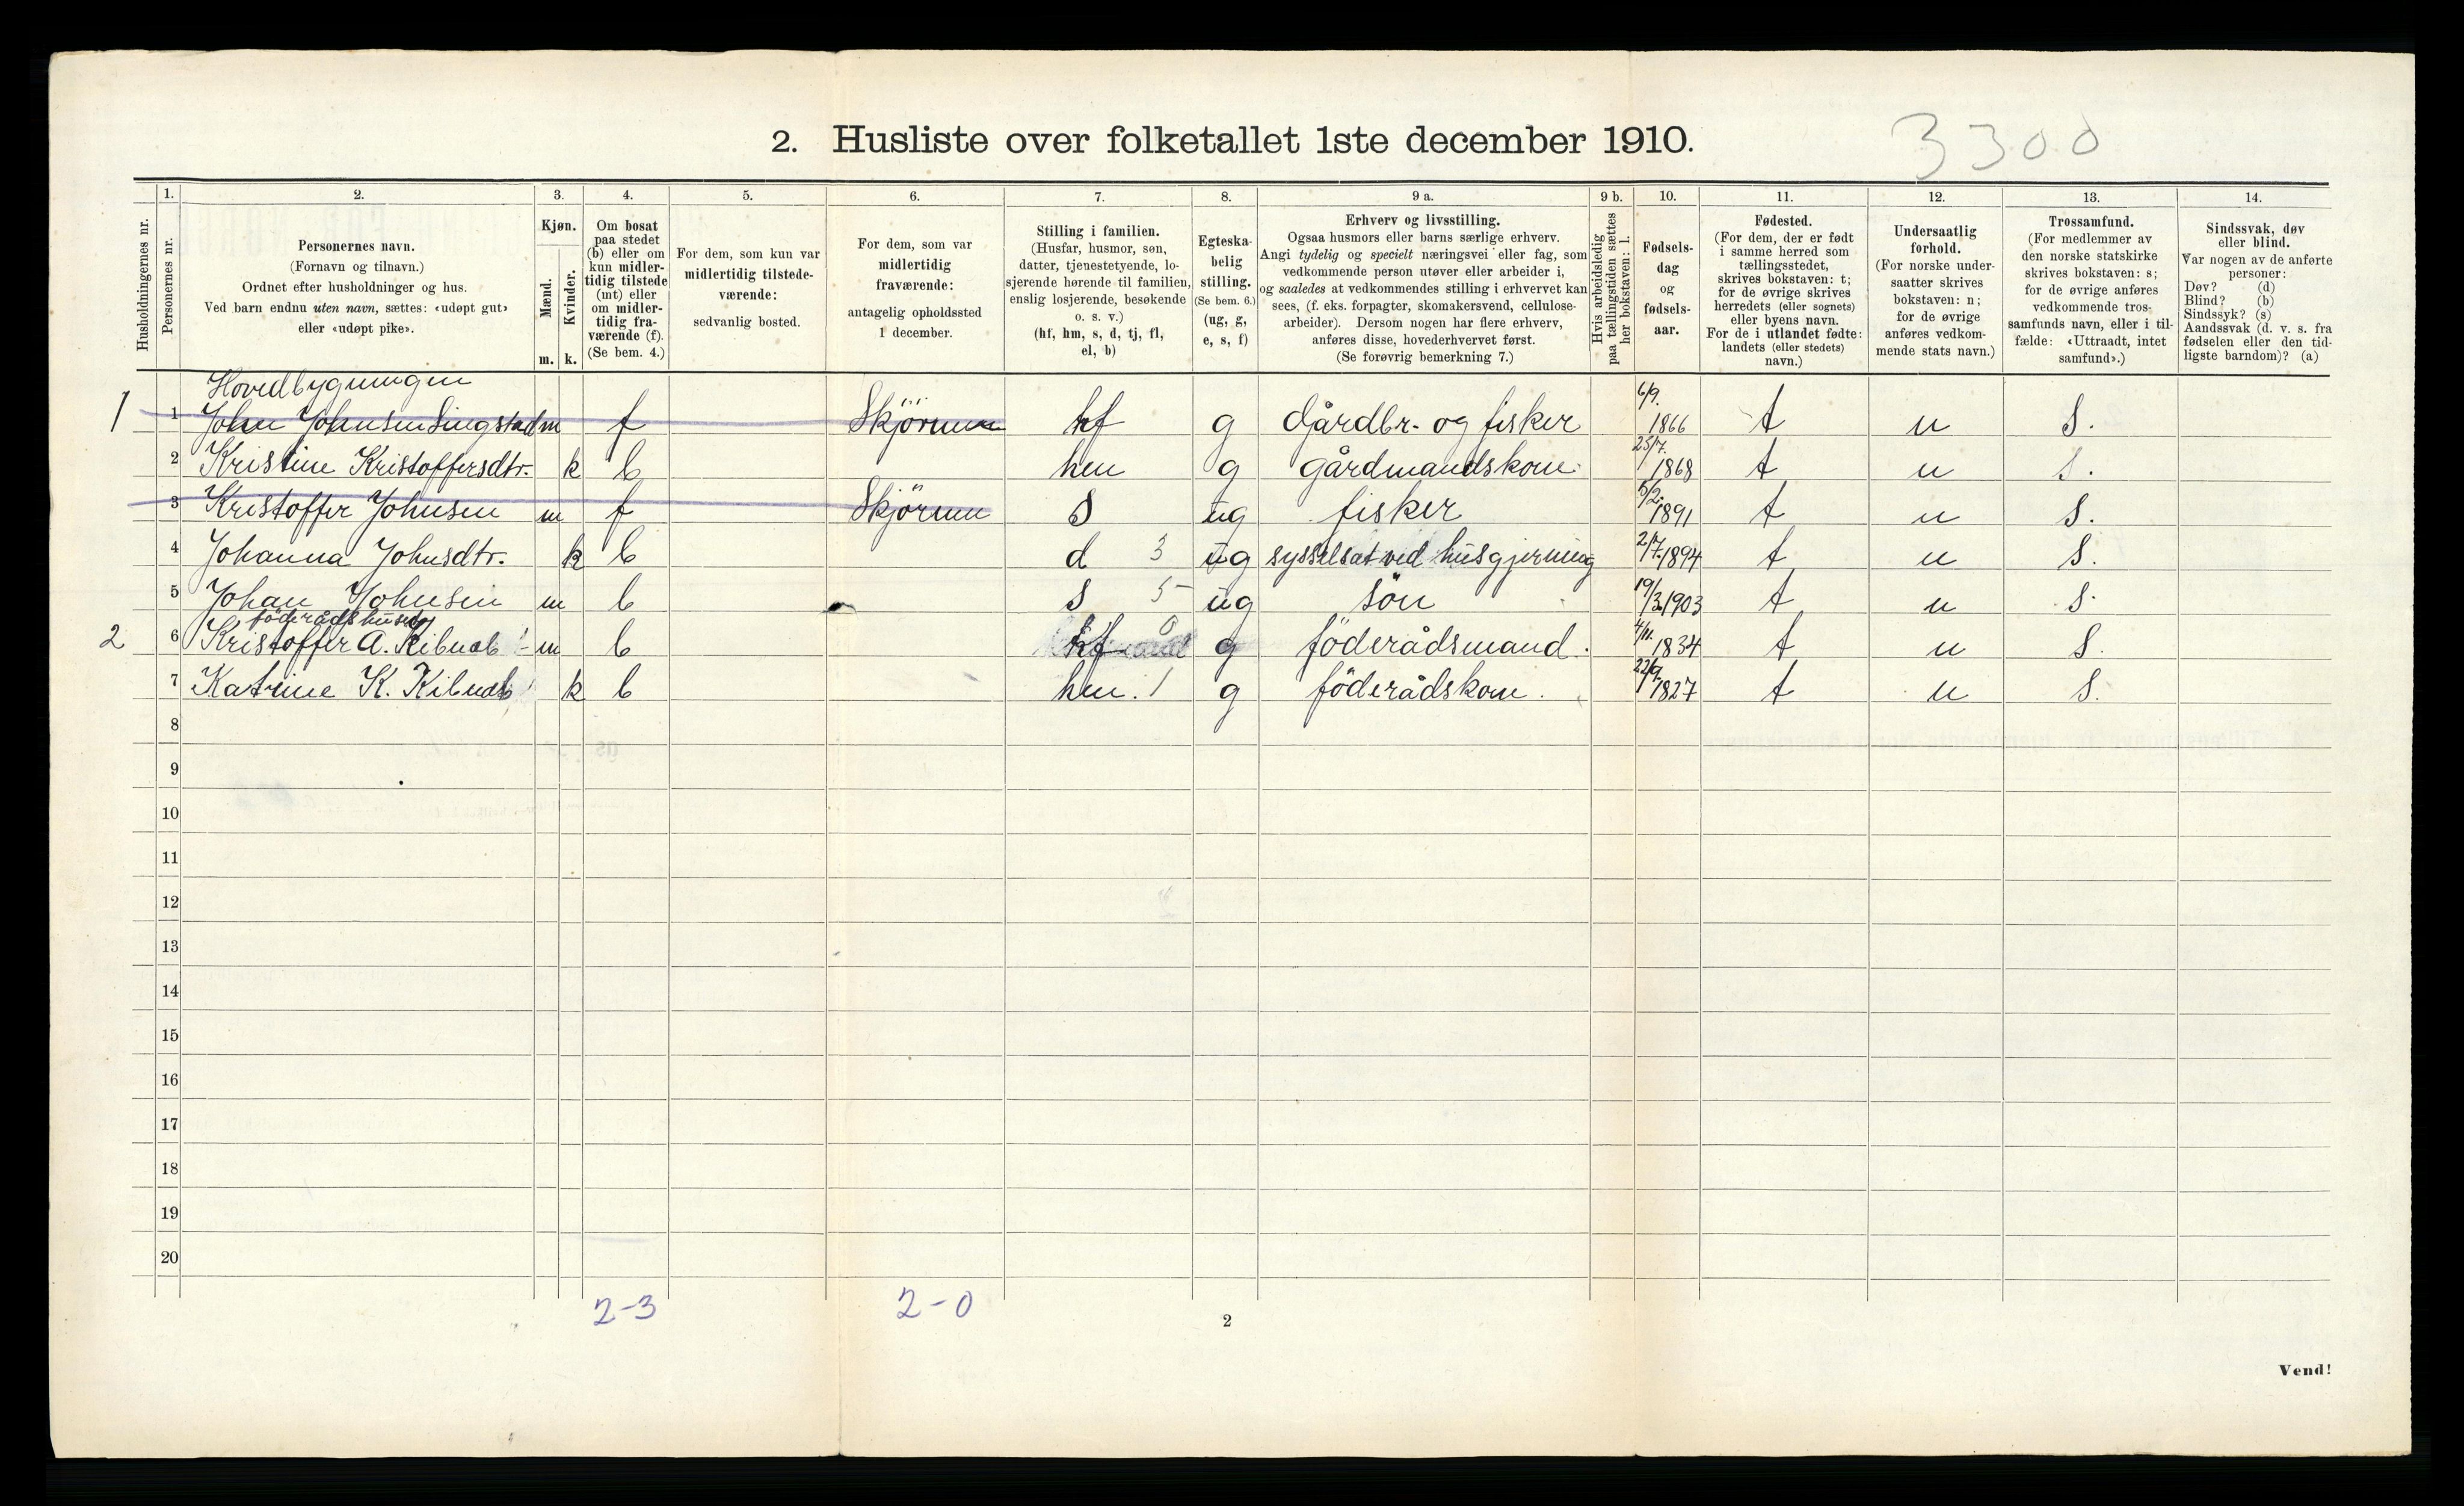 2. Husliste over folketallet 1ste december 1910.
3300
Husholdningernes nr.
1.
Personernes nr.
2.
Personernes navn.
(Fornavn og tilnavn.)
Ordnet efter husholdninger og hus.
Ved barn endnu uten navn, sættes: «udøpt gut»
eller «udøpt pike».
3.
Kjøn.
Mænd.
Kvinder.
m. k.
4.
Om bosat
paa stedet
(b) eller om
kun midler-
tidig tilstede
(mt) eller
om midler-
tidig fra-
værende (f).
(Se bem. 4.)
5.
For dem, som kun var
midlertidig tilstede-
værende:
sedvanlig bosted.
6.
For dem, som var
midlertidig
fraværende:
antagelig opholdssted
1 december.
7.
Stilling i familien.
(Husfar, husmor, søn,
datter, tjenestetyende, lo-
sjerende hørende til familien,
enslig losjerende, besøkende
o. s. v.)
(hf, hm, s, d, tj, fl,
el, b)
8.
Egteska-
belig
stilling.
(Se bem. 6.)
(ug, g,
e, s, f)
9 a.
Erhverv og livsstilling.
Ogsaa husmors eller barns særlige erhverv.
Angi tydelig og specielt næringsvei eller fag, som
vedkommende person utøver eller arbeider i,
og saaledes at vedkommendes stilling i erhvervet kan
sees, (f. eks. forpagter, skomakersvend, cellulose-
arbeider). Dersom nogen har flere erhverv,
anføres disse, hovederhvervet først.
(Se forøvrig bemerkning 7.)
9 b.
Hvis arbeidsledig
paa tællingstiden sættes
her bokstaven: l.
10.
Fødsels-
dag
og
fødsels-
aar.
11.
Fødested.
(For dem, der er født
i samme herred som
tællingsstedet,
skrives bokstaven: t;
for de øvrige skrives
herredets (eller sognets)
eller byens navn.
For de i utlandet fødte:
landets (eller stedets)
navn.)
12.
Undersaatlig
forhold.
(For norske under-
saatter skrives
bokstaven: n;
for de øvrige
anføres vedkom-
mende stats navn.)
13.
Trossamfund.
(For medlemmer av
den norske statskirke
skrives bokstaven: s;
for de øvrige anføres
vedkommende tros-
samfunds navn, eller i til-
fælde: «Uttraadt, intet
samfund».)
14.
Sindssvak, døv
eller blind.
Var nogen av de anførte
personer:
Døv? (d)
Blind? (b)
Sindssyk? (s)
Aandssvak (d. v. s. fra
fødselen eller den tid-
ligste barndom)? (a)
Hovedbygningen
1 1 John Johnsen Singstad m f Skjörum hf g Gårdbr. og fisker 6/9. 1866 t n S.
2 Kristine Kristoffersdtr. k b hm g gårdmandskone 25/7. 1868 t n S.
3 Kristoffer Johnsen m f Skjörum S ug fisker 5/2. 1891 t n S.
4 Johanna Johnsdtr. k b d 3 ug sysselsat ved husgjerning 2/7. 1894 t n S.
5 Johan Johnsen m b S 5 ug sön 19/3. 1903 t n S.
föderådshuset
2 6 Kristoffer A. m b hf 0 g föderådsmand. 4/11. 1834 t n S.
7 Katrine K. k b hm. 1 g föderådskone. 22/9. 1827 t n S.
8
9
10
11
12
13
14
15
16
17
18
19
20
2-3 2-0
2
Vend!